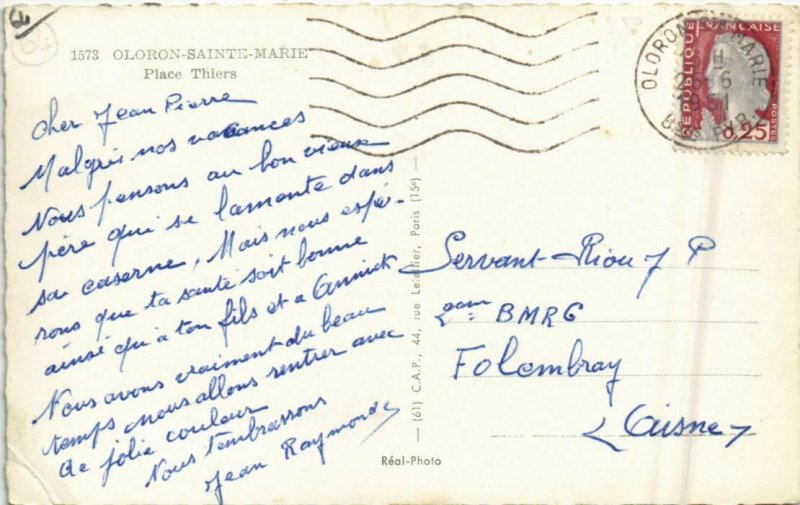 64
1573 OLORON-SAINTE-MARIE
Place Thiers
Cher Jean Pierre
Malgrès nos vacances
Nous pensons au bon vieux
père qui se lamente dans
sa caserne, Mais nous espé-
rons que ta santé soit bonne
ainsi qu'à ton fils et a Annick
Nous avons vraiment du beau
temps nous allons rentrer avec
de jolie couleur
Nous t'embrassons
Jean Raymonde
(61) C.A.P., 44, rue Letellier, Paris (15e)
Réal-Photo
OLORON Ste MARIE
Bses PYR.
RÉPUBLIQUE FRANÇAISE
0,25
POSTES
Servant-Riou J P
2eme BMRG
Folembray
(Aisne)